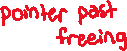 pointer past
freeing